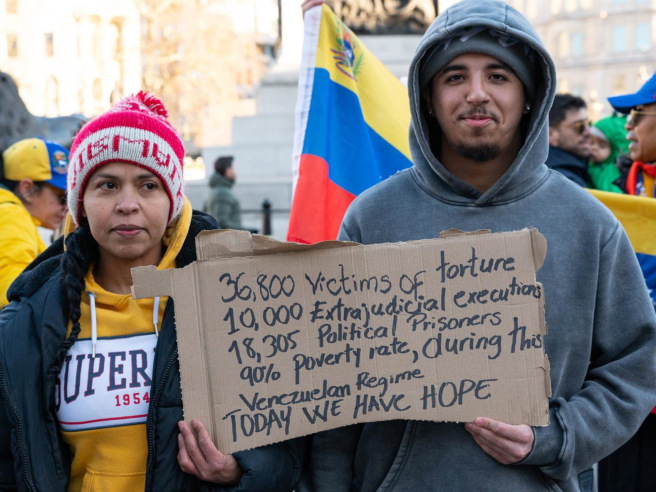 36,800 Victims of torture
10,000 Extrajudicial executions
18,305 Political Prisoners
90% Poverty rate, during this
Venezuelan Regime
TODAY WE HAVE HOPE
UPER
1954